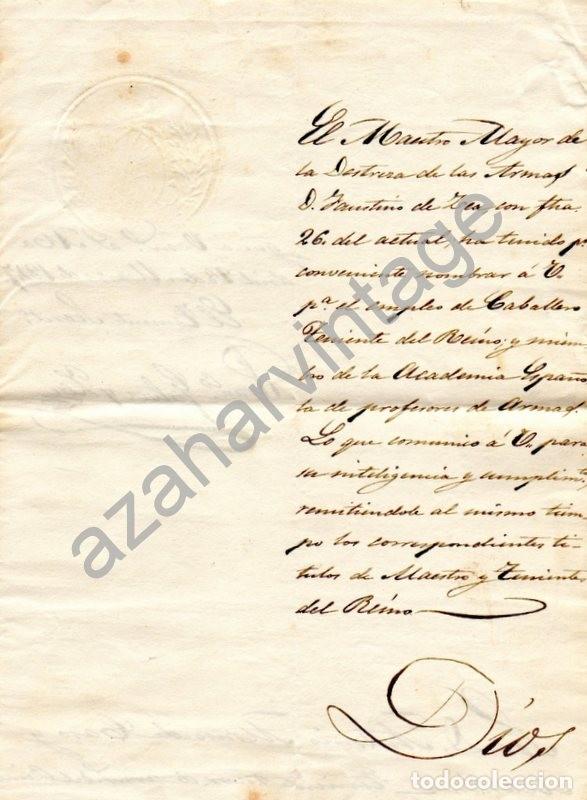 El Maestro Mayor de
la Destreza de las Armas
D. Faustino de Zea con fha
26. del actual, ha tenido pr
conveniente nombrar á V.
pa. el empleo de Caballero
Teniente del Reino y miem
bro de la Academia Españo
la de profesores de Armas.
Lo que comunico á V. para
su inteligencia y cumplimto,
remitiendole al mismo tiem
po los correspondientes ti
tulos de Maestro y Teniente
del Reino
Dios
azaharvintage
todocoleccion